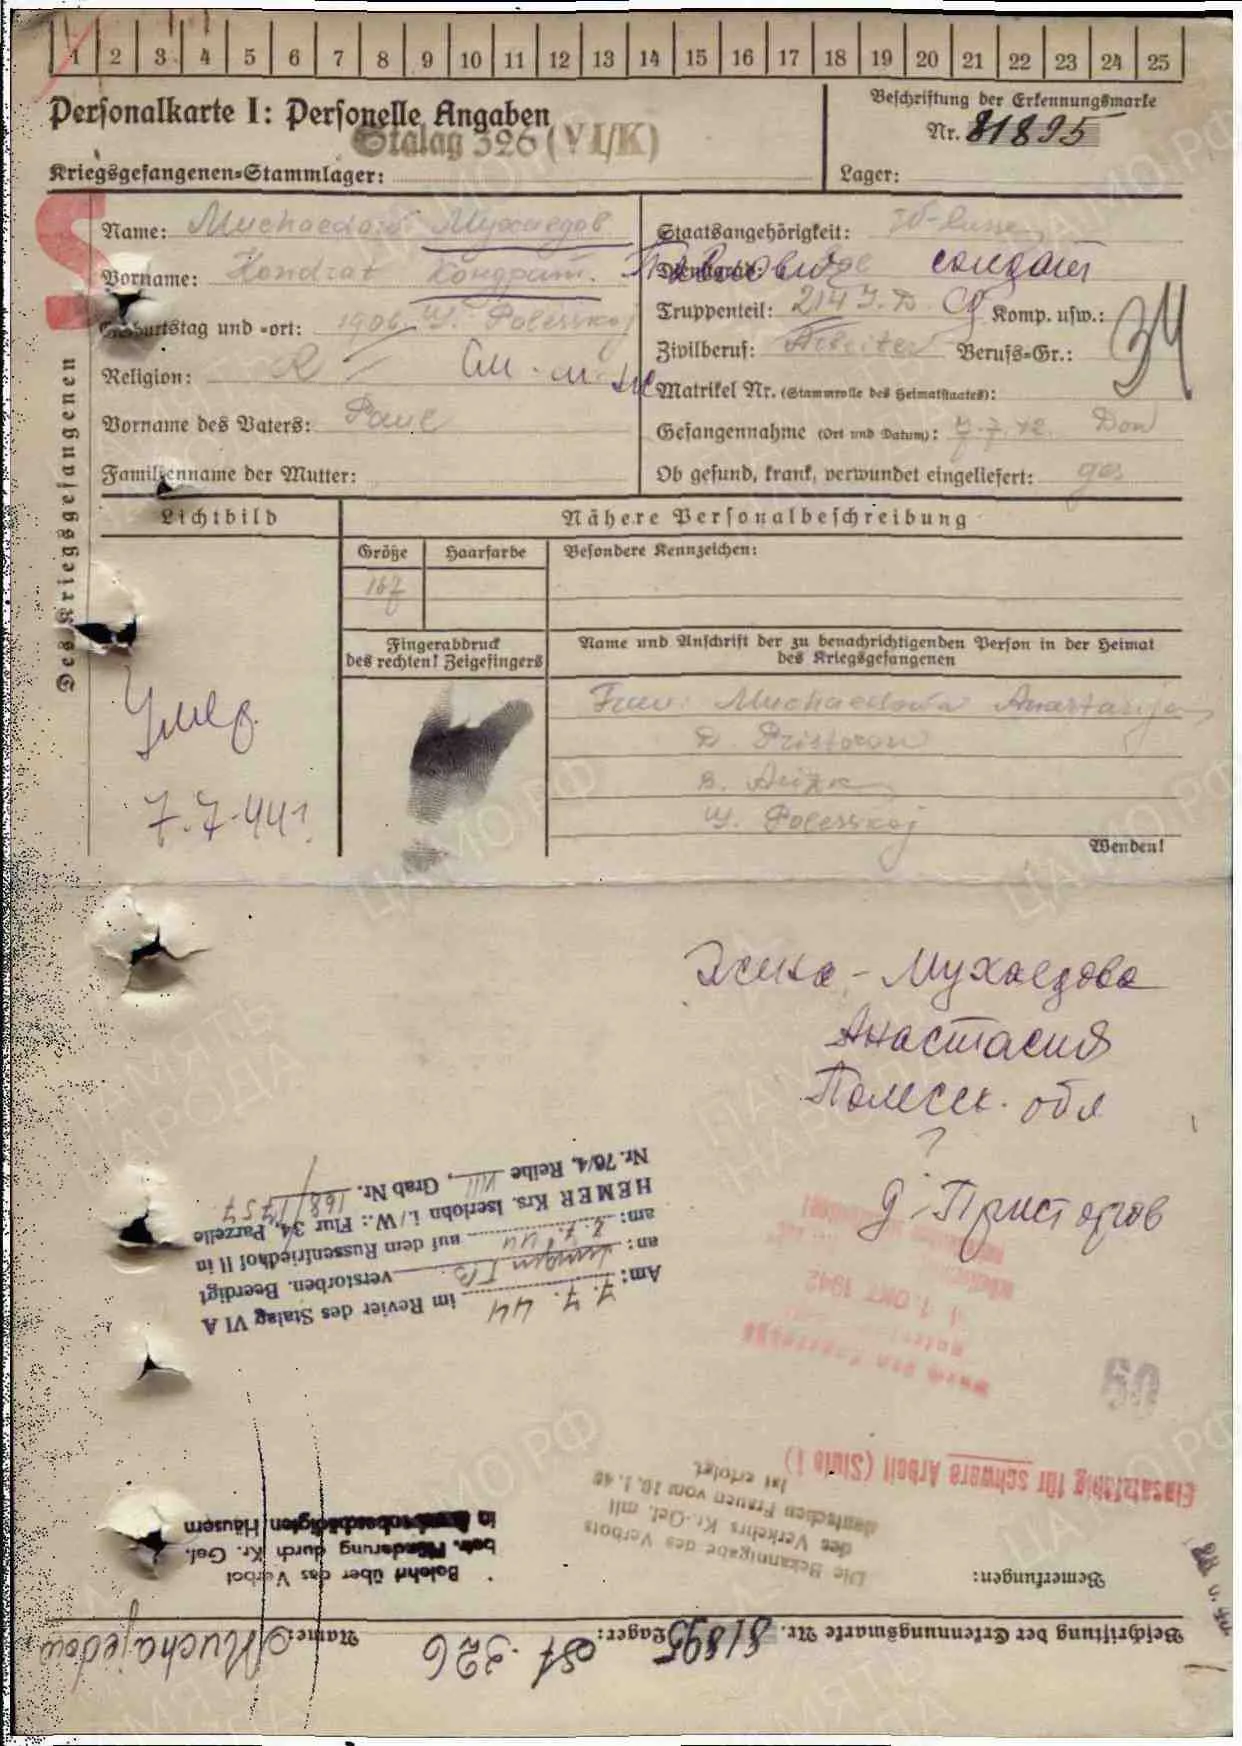 1 2 3 4 5 6 7 8 9 10 11 12 13 14 15 16 17 18 19 20 21 22 23 24 25
Personalkarte I: Personelle Angaben
Stalag 326 (VI/K)
Kriegsgefangenen-Stammlager:
Beschriftung der Erkennungsmarke
Nr. 81895
Lager:
Des Kriegsgefangenen
Name: Muchaedow Мухаедов
Vorname: Kondrat Кондрат. Павлович
Geburtstag und -ort: 1906. Polesskoj
Religion: R
Vorname des Vaters: Paul
Familienname der Mutter:
Staatsangehörigkeit:
Dienstgrad: солдат
Truppenteil: 214 J. D. Komp. usw.:
Zivilberuf: Arbeiter Berufs-Gr.:
34
Matrikel Nr. (Stammrolle des Heimatstaates):
Gefangennahme (Ort und Datum): 7.7.42. Don
Ob gesund, krank, verwundet eingeliefert: ges
Lichtbild
Nähere Personalbeschreibung
Größe Haarfarbe Besondere Kennzeichen:
167
Fingerabdruck
des rechten! Zeigefingers
Name und Anschrift der zu benachrichtigenden Person in der Heimat
des Kriegsgefangenen
Frau: Muchaedowa Anastasija
D. Pristorow
Polesskoj
Wenden!
Умер
7.7.44 г.
Жена - Мухаедова
Анастасия
Полесск. обл
?
д. Присторов
Am: 7. 7. 44 im Revier des Stalag VI A
an: verstorben. Beerdigt
am: 7.44 auf dem Russenfriedhof II in
HEMER Krs. Iserlohn i/W.: Flur 34, Parzelle
Nr. 76/4, Reihe VIII, Grab Nr. 168/1757
1. OKT 1942
60
Einsatzfähig für schwere Arbeit (Stufe I)
Die Bekanntgabe des Verbots
des Verkehrs Kr.-Gef. mit
deutschen Frauen vom 16. 1. 40
ist erfolgt.
Belehrt über das Verbot
betr. Plünderung durch Kr. Gef.
in Häusern
Bemerkungen:
Beschriftung der Erkennungsmarke Nr. 81895 Lager: St. 326 Name: Muchajedow